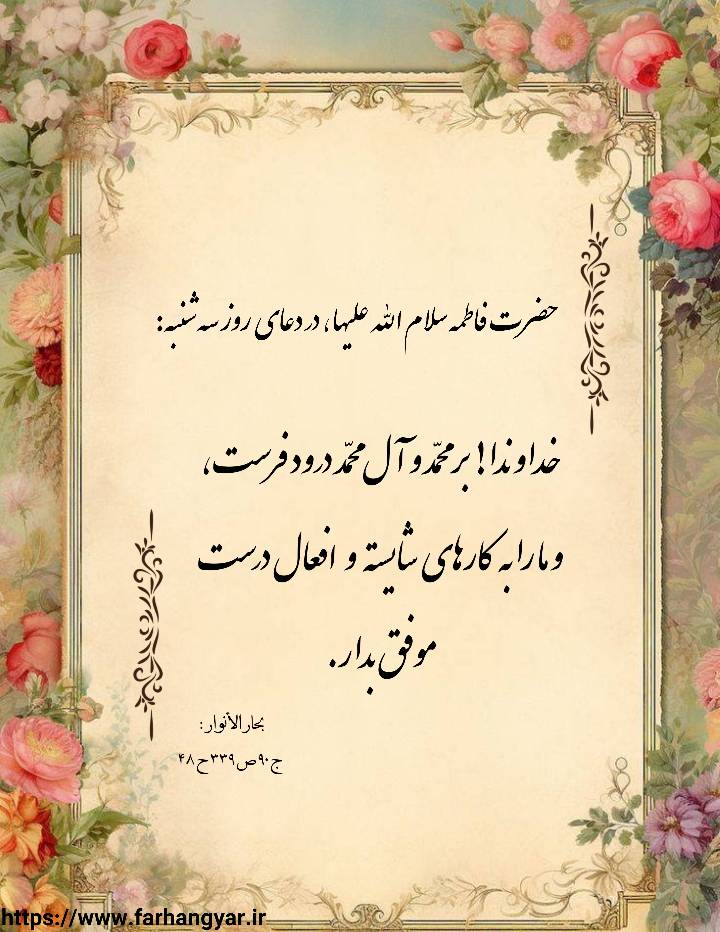 حضرت فاطمه سلام الله علیها، در دعای روز سه شنبه:
خداوندا! بر محمّد و آل محمّد درود فرست،
و ما را به کارهای شایسته و افعال درست
موفق بدار.
بحارالأنوار:
ج۹۰ص۳۳۹ح۴۸
https://www.farhangyar.ir